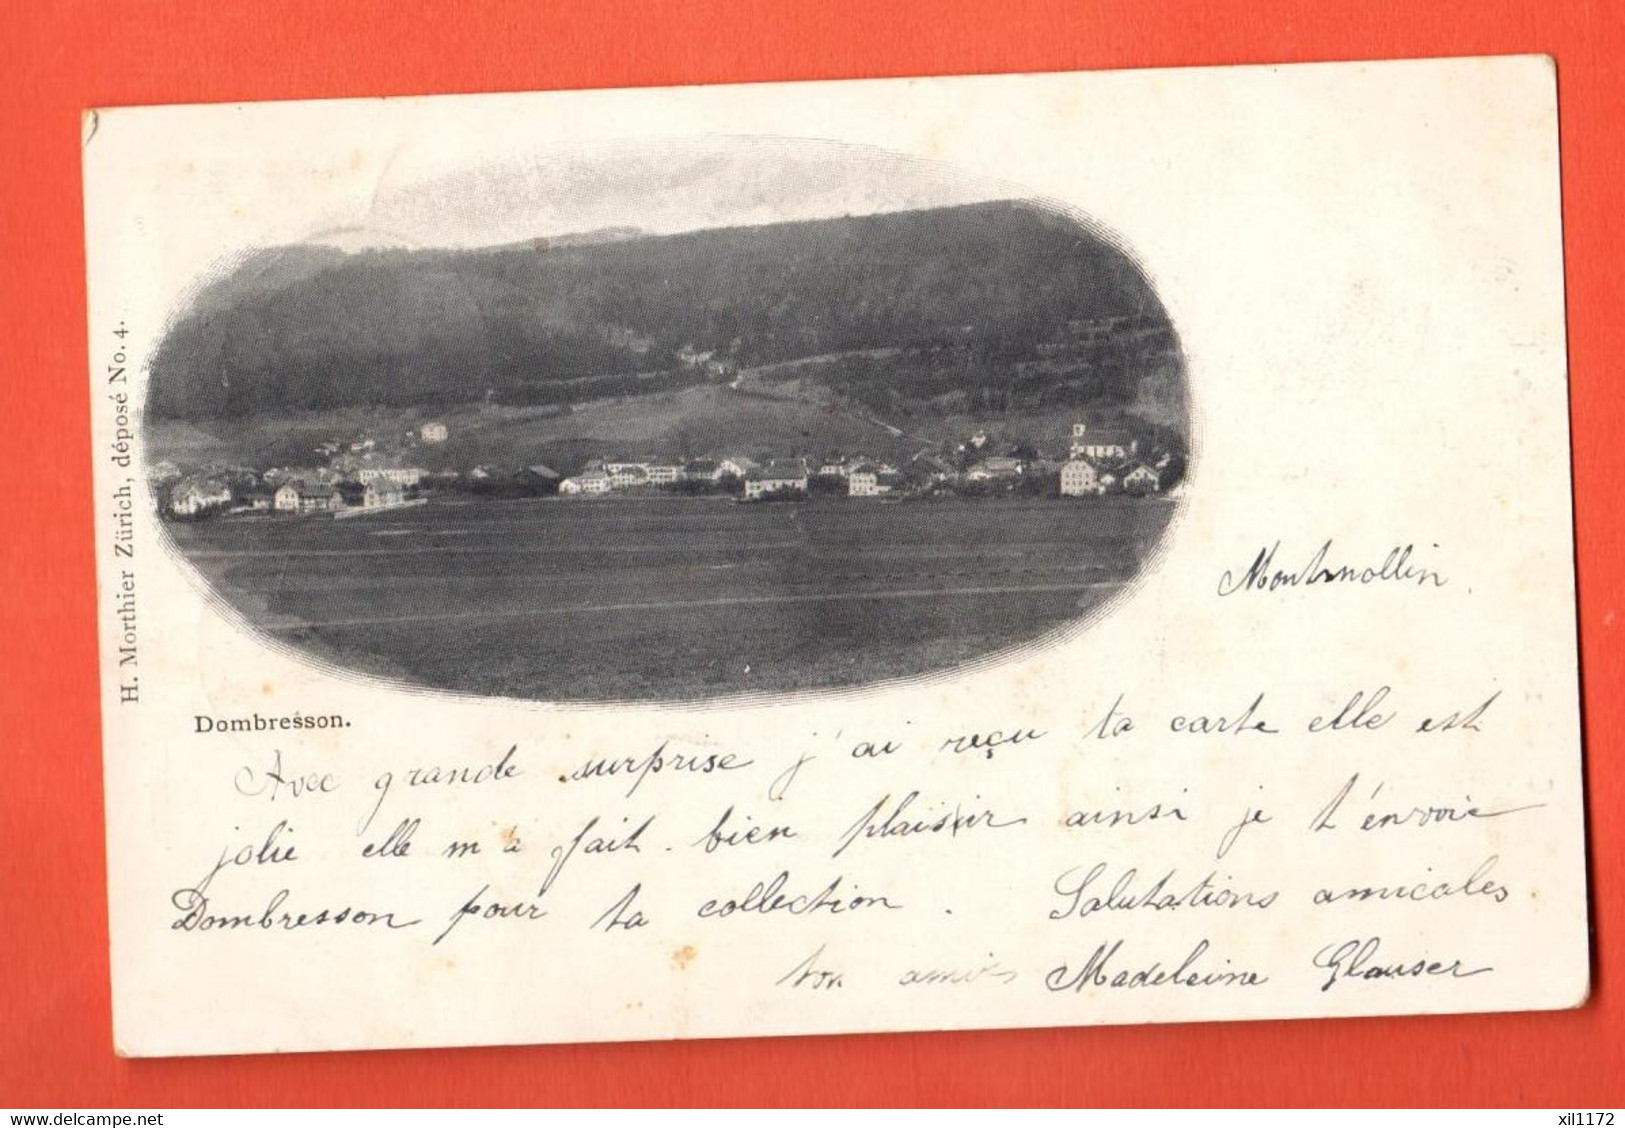 H. Morthier Zürich, déposé No. 4.
Dombresson.
Montmollin.
Avec grande surprise j'ai reçu ta carte elle est
jolie elle m'a fait bien plaisir ainsi je t'envoie
Dombresson pour ta collection. Salutations amicales
ton amie Madeleine Glauser
www.delcampe.net
xil1172